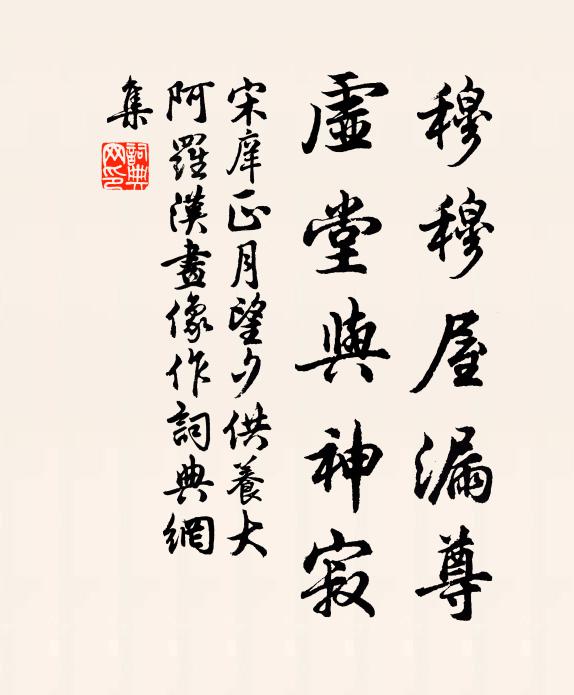 穆穆屋漏尊
虛堂與神寂
宋庠正月望夕供養大
阿羅漢畫像作詞典網
集
詞典網印